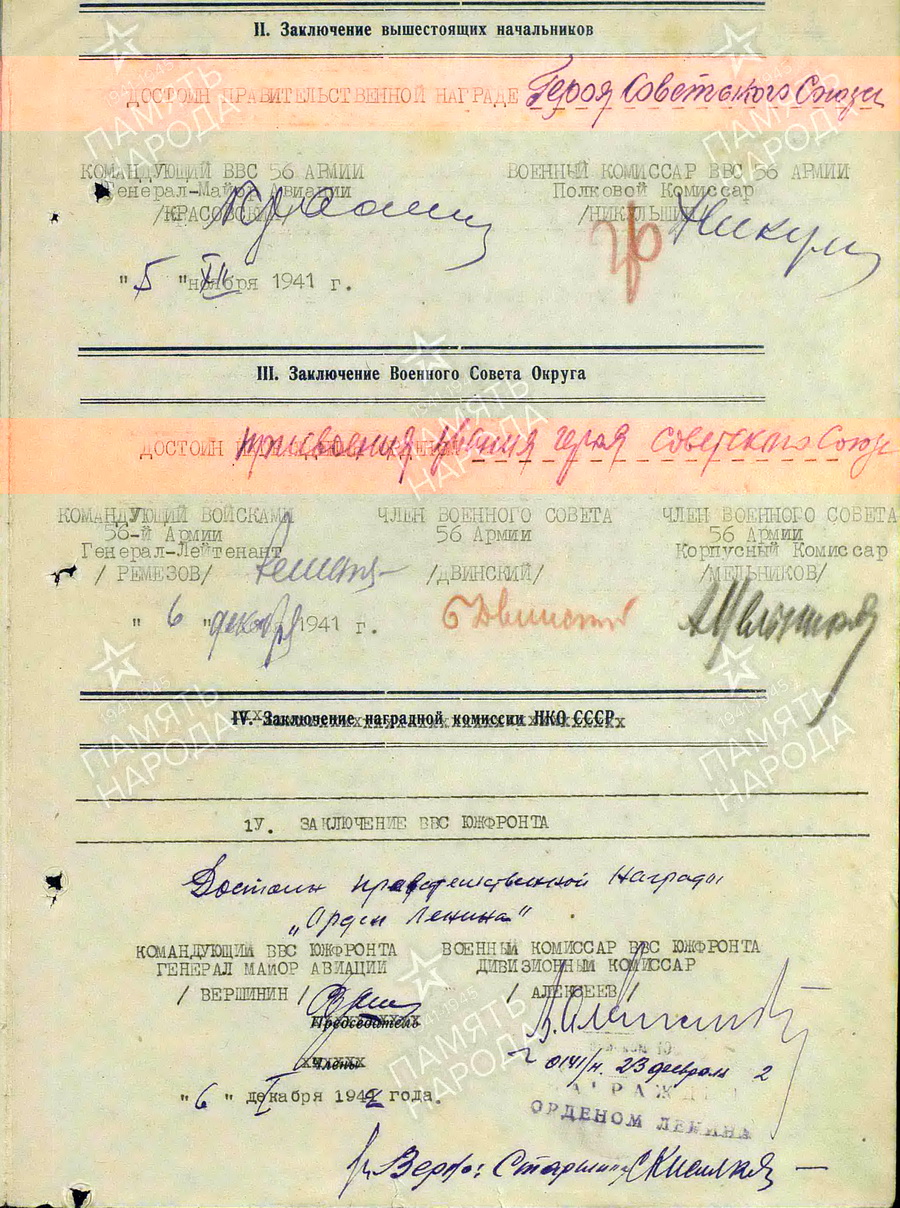 II. Заключение вышестоящих начальников
ДОСТОИН ПРАВИТЕЛЬСТВЕННОЙ НАГРАДЕ Героя Советского Союза
КОМАНДУЮЩИЙ ВВС 56 АРМИИ ВОЕННЫЙ КОМИССАР ВВС 56 АРМИИ
Генерал-Майор Авиации Полковой Комиссар
/КРАСОВСКИЙ/ /НИКУЛЬШИН/
"5" XII ноября 1941 г.
III. Заключение Военного Совета Округа
ДОСТОИН присвоения звания героя Советского Союза
КОМАНДУЮЩИЙ ВОЙСКАМИ ЧЛЕН ВОЕННОГО СОВЕТА ЧЛЕН ВОЕННОГО СОВЕТА
56-й Армии 56 Армии 56 Армии
Генерал-Лейтенант Корпусный Комиссар
/ РЕМЕЗОВ/ /ДВИНСКИЙ/ /МЕЛЬНИКОВ/
" 6 " декабря 1941 г.
IV. Заключение наградной комиссии НКО СССР
1У. ЗАКЛЮЧЕНИЕ ВВС ЮЖФРОНТА
Достоин правительственной награды
"Орден Ленина"
КОМАНДУЮЩИЙ ВВС ЮЖФРОНТА ВОЕННЫЙ КОМИССАР ВВС ЮЖФРОНТА
ГЕНЕРАЛ МАЙОР АВИАЦИИ ДИВИЗИОННЫЙ КОМИССАР
/ ВЕРШИНИН / / АЛЕКСЕЕВ /
Председатель
Члены
0141/н. 23 февраля 2
"6" I декабря 1942 года.
ОРДЕНОМ ЛЕНИНА
Верно: Старшина
ПАМЯТЬ НАРОДА
1941-1945